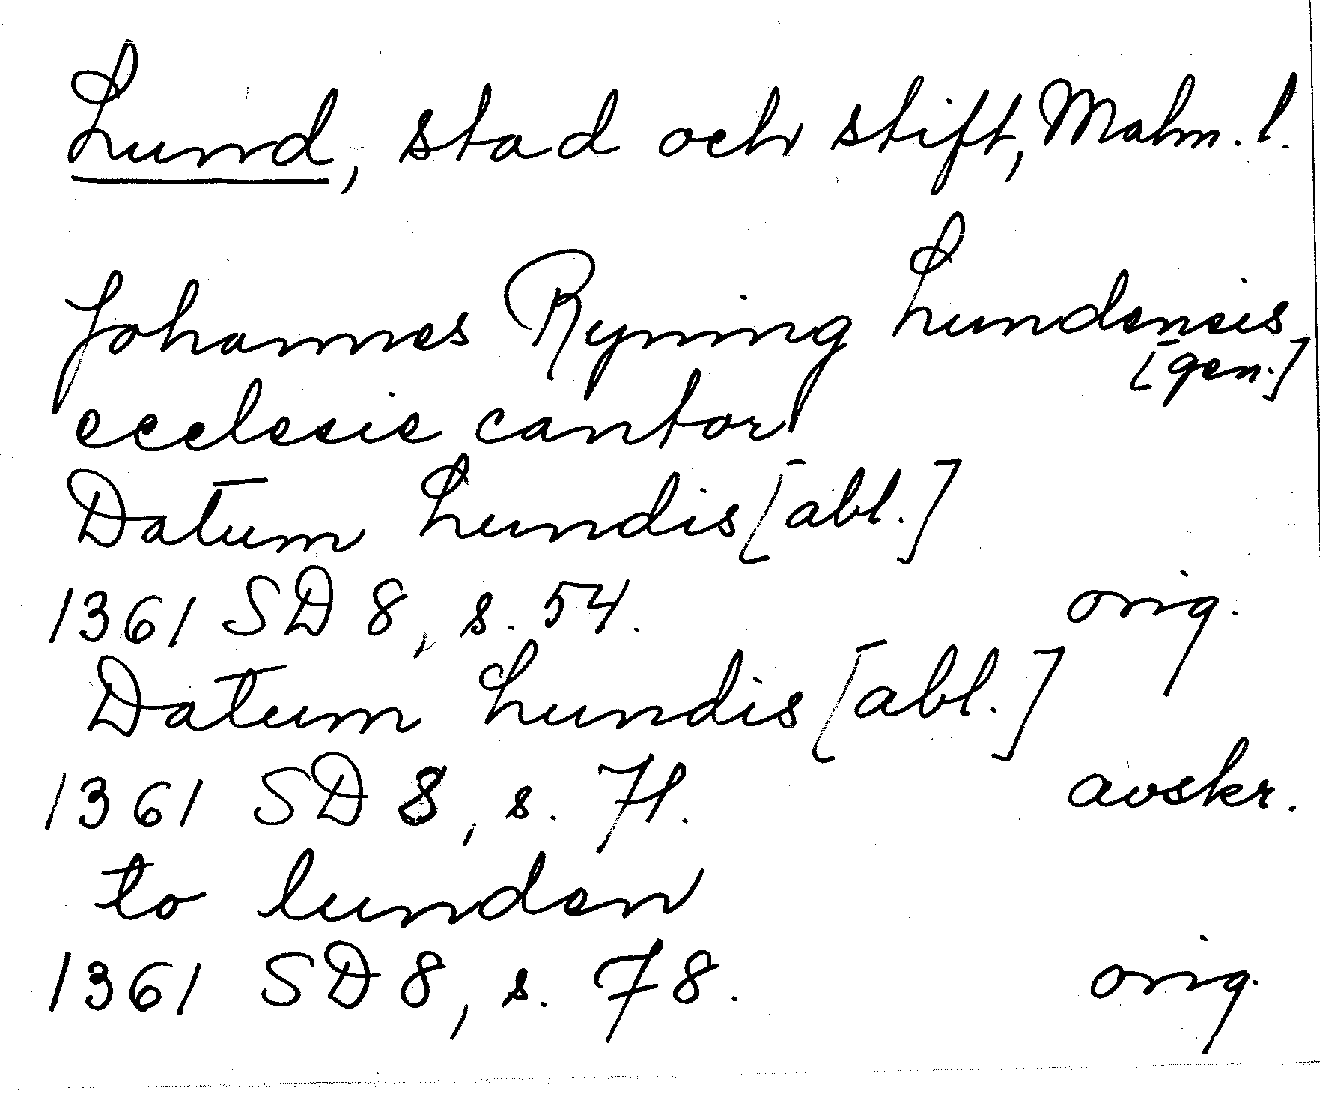 Lund, stad och stift, Malm. l.
Johannes Ryning Lundensis [gen.]
ecclesie cantor
Datum Lundis [abl.]
1361 SD 8, s. 54. orig.
Datum Lundis [abl.]
1361 SD 8, s. 71. avskr.
to lunden
1361 SD 8, s. 78. orig.